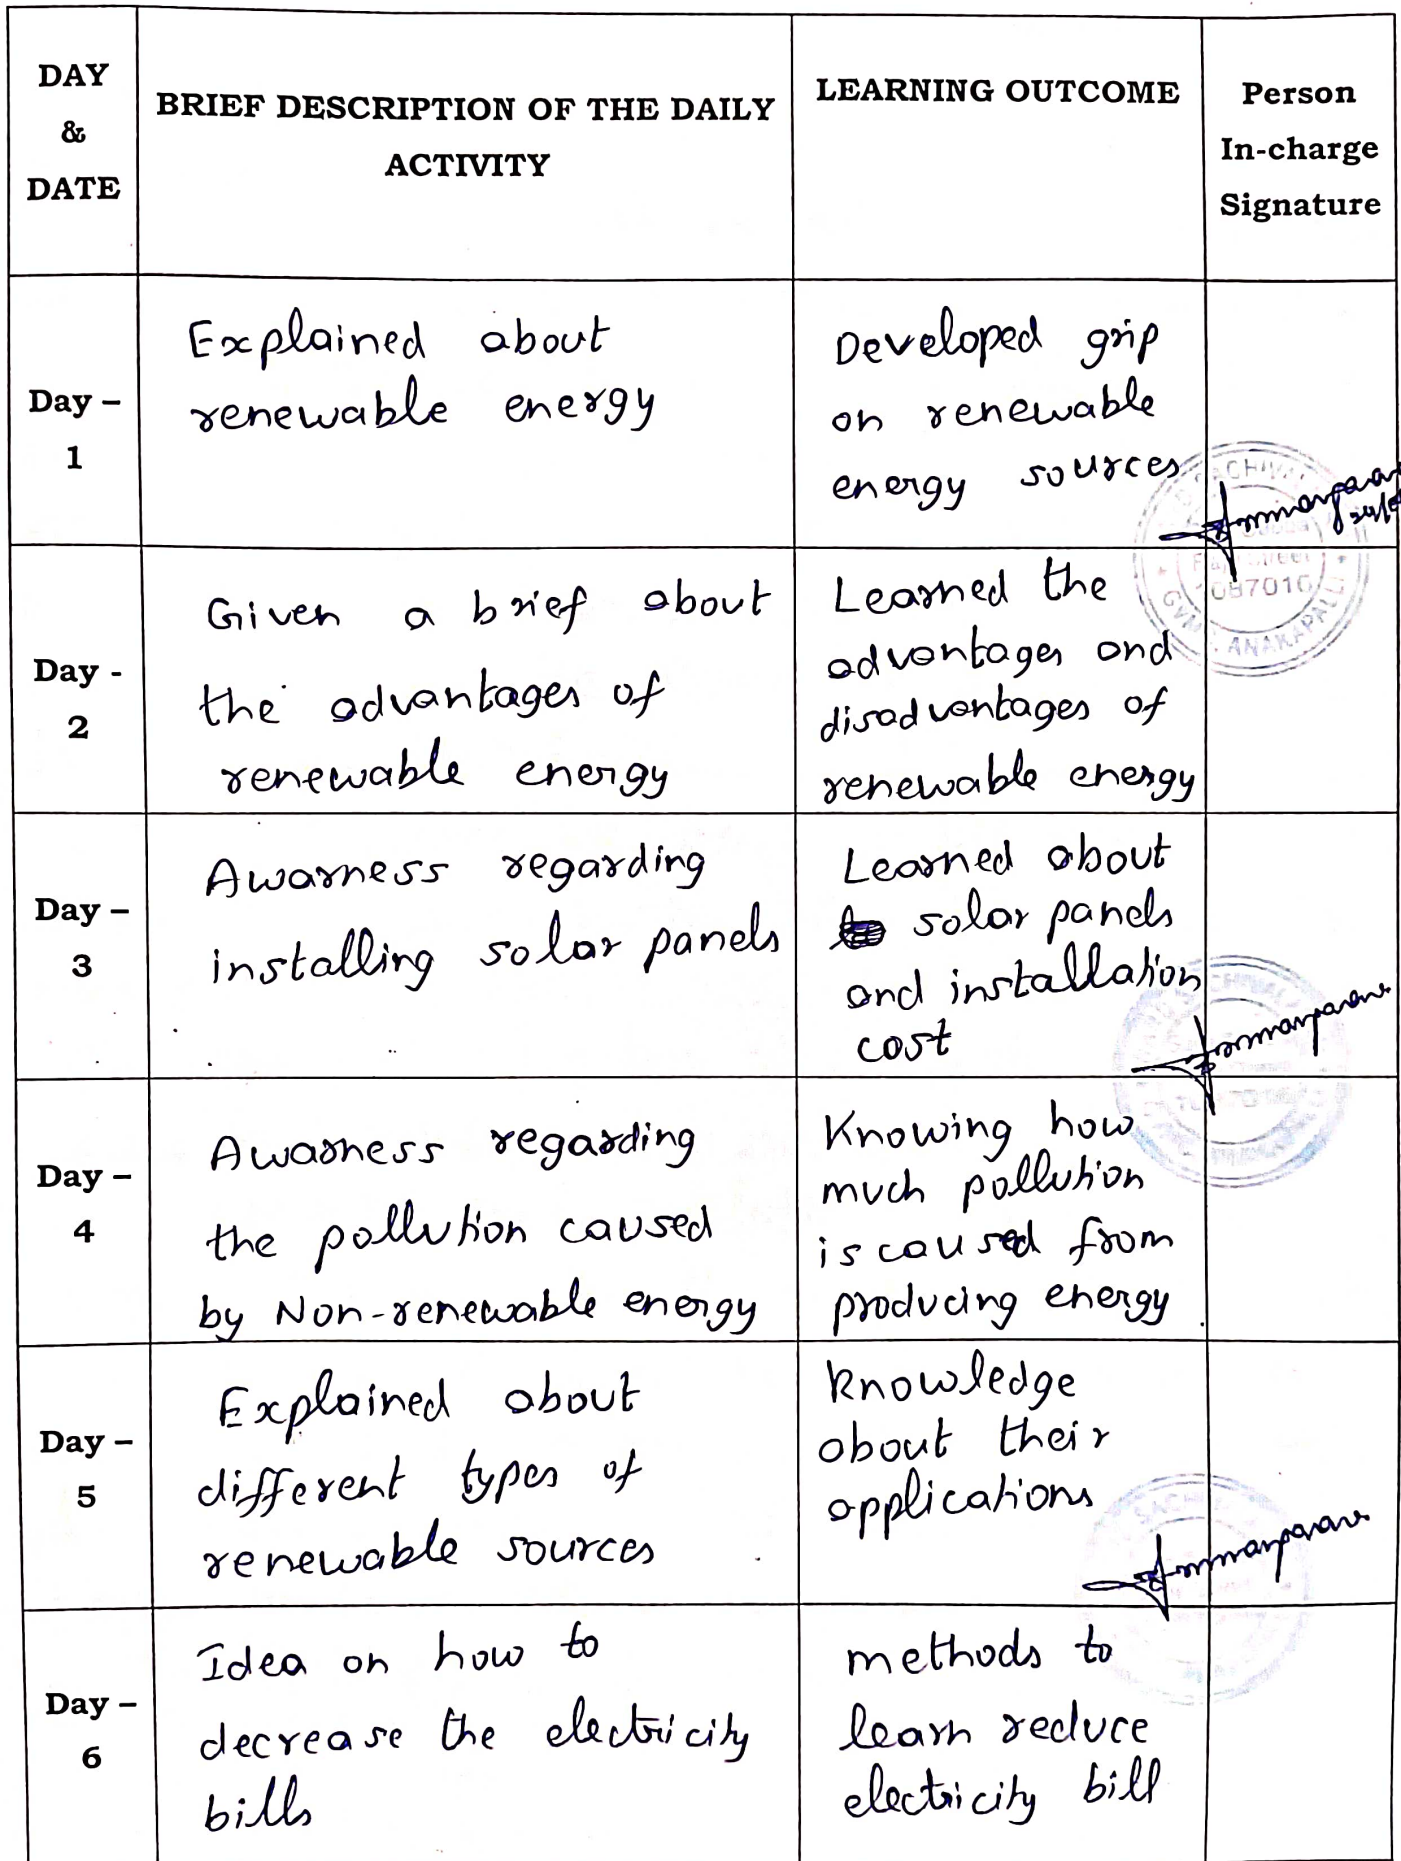 DAY
&
DATE
BRIEF DESCRIPTION OF THE DAILY
ACTIVITY
LEARNING OUTCOME
Person
In-charge
Signature
Day –
1
Explained about
renewable energy
Developed grip
on renewable
energy sources
Day -
2
Given a brief about
the advantages of
renewable energy
Learned the
advantages and
disadvantages of
renewable energy
ANAKAPALLI
Day –
3
Awarness regarding
installing solar panels
Learned about
solar panels
and installation
cost
Day –
4
Awarness regarding
the pollution caused
by Non-renewable energy
Knowing how
much pollution
is caused from
producing energy
Day –
5
Explained about
different types of
renewable sources
knowledge
about their
applications
Day –
6
Idea on how to
decrease the electricity
bills
methods to
learn reduce
electricity bill